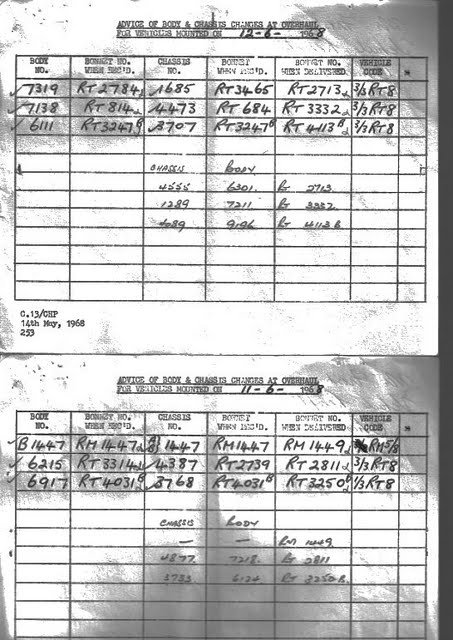 ADVICE OF BODY & CHASSIS CHANGES AT OVERHAUL
FOR VEHICLES MOUNTED ON 12-6- 1968
BODY NO. BONNET NO. WHEN REC'D. CHASSIS NO. BONNET WHEN REC'D. BONNET NO. WHEN DELIVERED VEHICLE CODE
7319 RT2784 1685 RT3465 RT2713 3/3RT8
7138 RT814 4473 RT684 RT3332 3/3RT8
6111 RT3247 3707 RT3247 RT4113 3/3RT8
CHASSIS BODY
4555 6301 RT 2713
1289 7211 RT 3332
4089 9196 RT 4113B
C.13/GHP
14th May, 1968
253
ADVICE OF BODY & CHASSIS CHANGES AT OVERHAUL
FOR VEHICLES MOUNTED ON 11-6- 1968
BODY NO. BONNET NO. WHEN REC'D. CHASSIS NO. BONNET WHEN REC'D. BONNET NO. WHEN DELIVERED VEHICLE CODE
B1447 RM1447 1447 RM1447 RM1449 RM5/8
6215 RT3314 4387 RT2739 RT2811 3/3RT8
6917 RT4031 3768 RT4031 RT3250 1/3RT8
CHASSIS BODY
— — RM 1449
4877 7218 RT 2811
3733 6124 RT 3250B